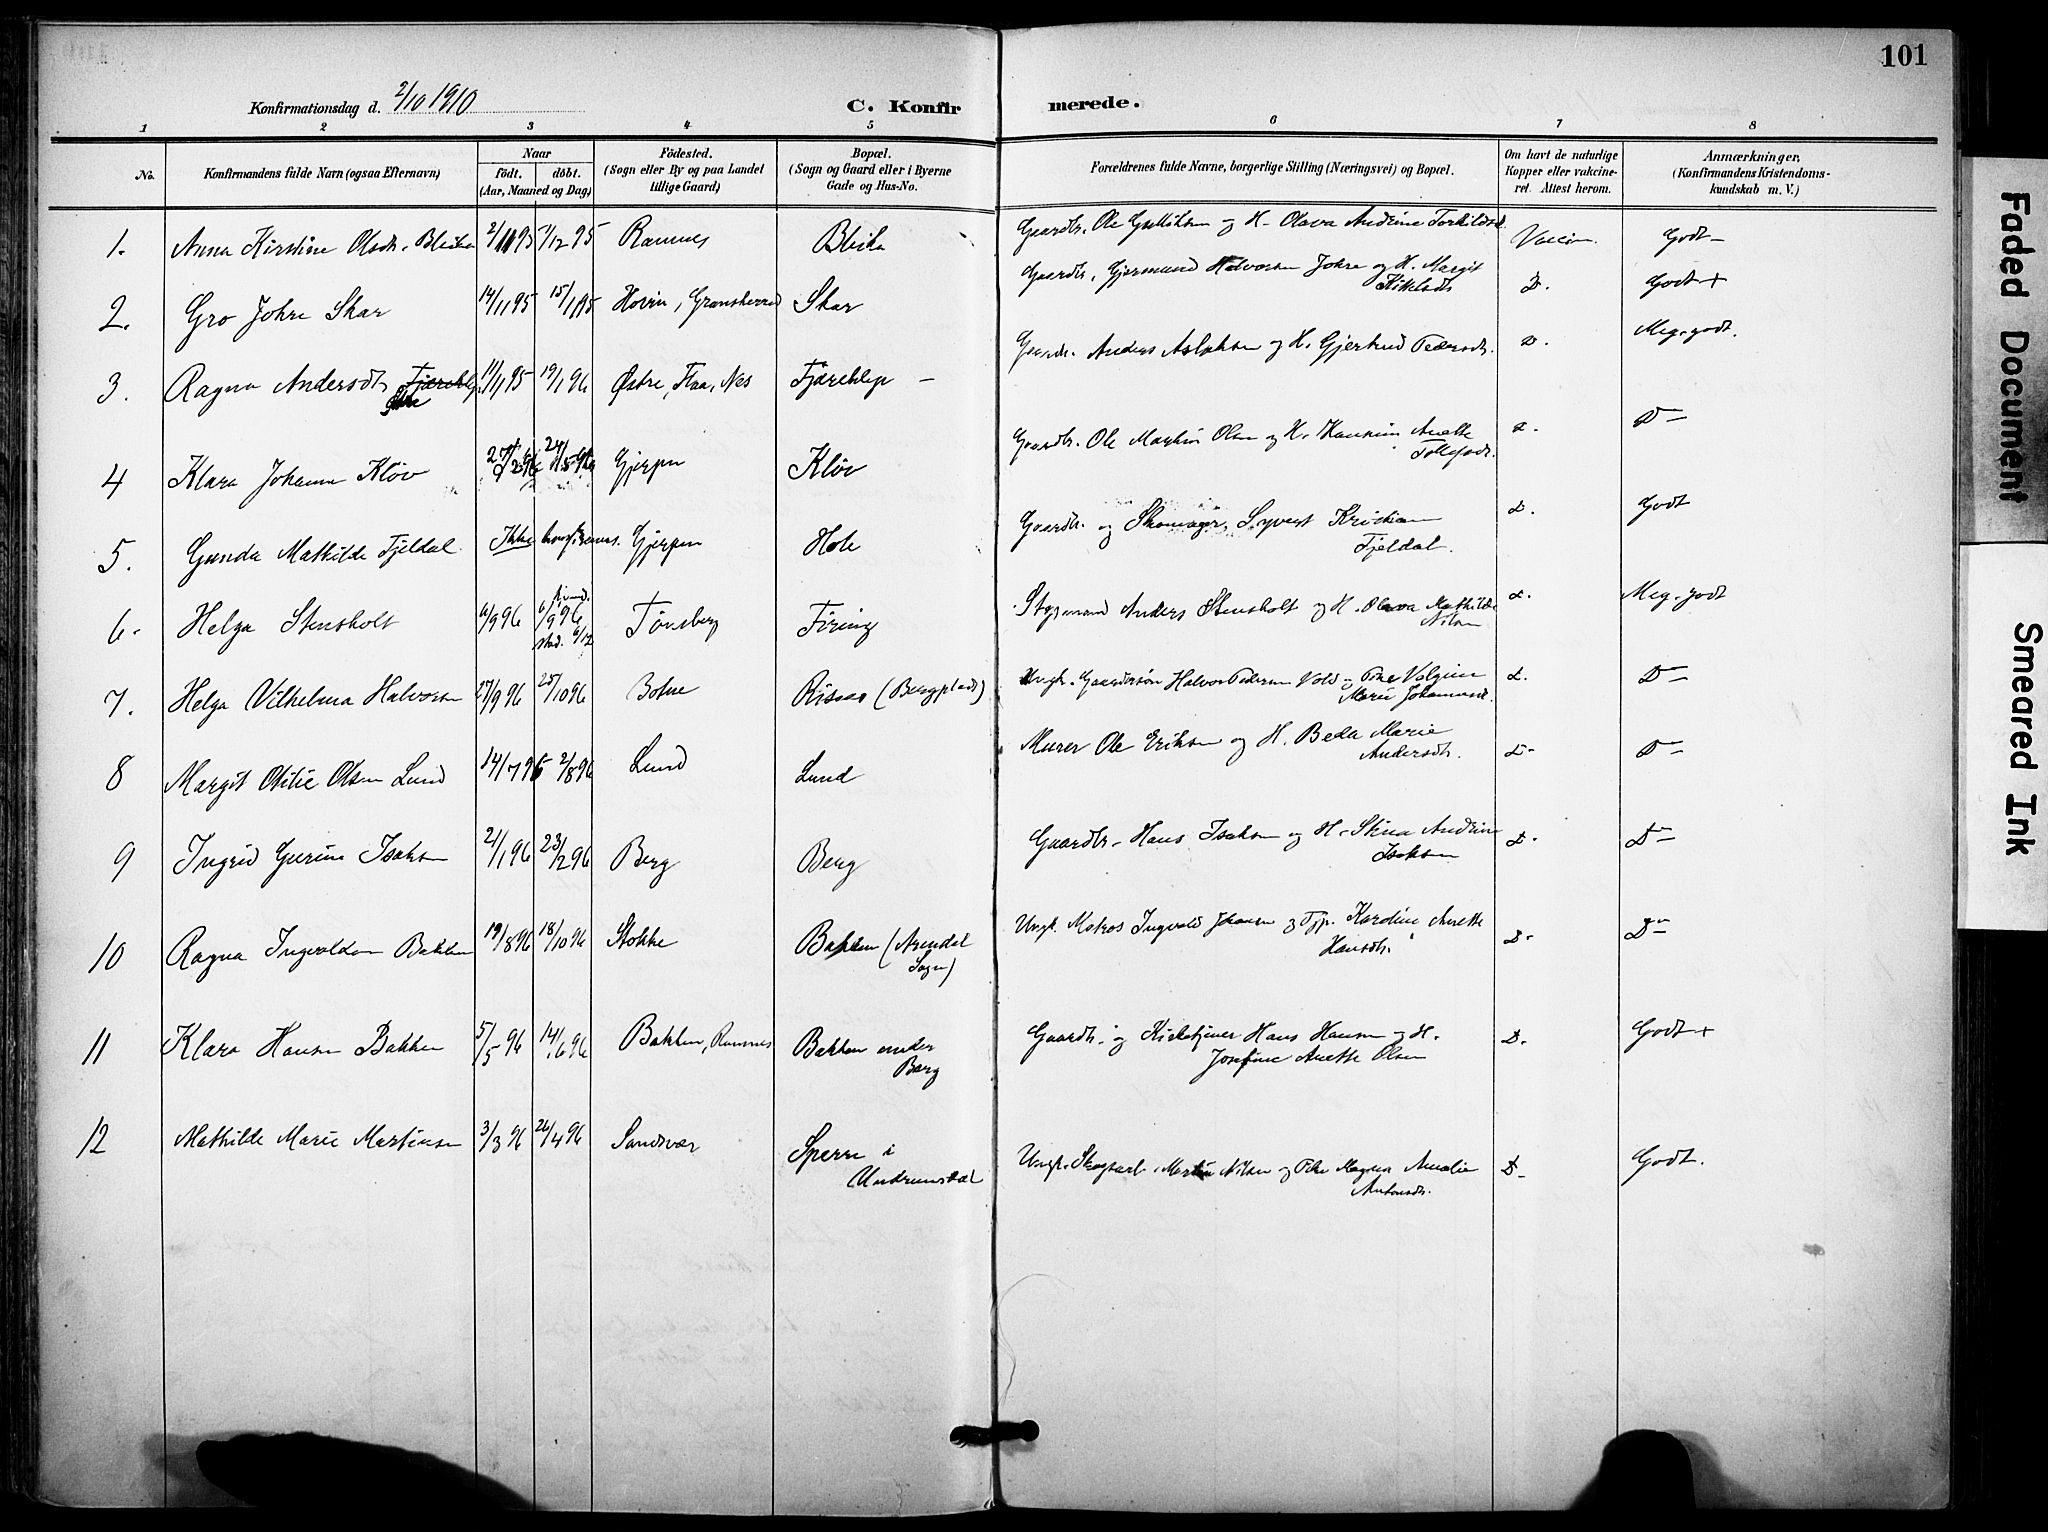 101
Konfirmationsdag d. 2/10 1910
C. Konfirmerede.
1 2 3 4 5 6 7 8
No.
Konfirmandens fulde Navn (ogsaa Efternavn)
Naar
födt. döbt.
(Aar, Maaned og Dag)
Födested.
(Sogn eller By og paa Landet
tillige Gaard)
Bopæl.
(Sogn og Gaard eller i Byerne
Gade og Hus-No.
Forældrenes fulde Navne, borgerlige Stilling (Næringsvei) og Bopæl.
Om havt de naturlige
Kopper eller vakcine-
ret. Attest herom.
Anmærkninger,
(Konfirmandens Kristendoms-
kundskab m. V.)
1. Anna Kirstine Olsdr. Bleika 2/11 95 7/12 95 Ramnes Bleika Gaardbr. Ole Gulliksen og H. Olava Andrine Torkildsd. Vaccin. Godt -
2. Gro Johre Skar 14/1 95 15/1 95 Hovin, Gransherred Skar Gaardbr. Gjermund Halvorsen Johre og H. Margit
Kittelsdtr D. Godt +
3. Ragna Andersdtr 11/11 95 19/1 96 Østre, Flaa, Nes Fjæreklep - Gaardbr. Anders Aslaksen og H. Gjertrud Pedersdtr. D. Meg. godt.
4 Klara Johanne Kløv 24/5 96 Gjerpen Kløv Gaardbr. Ole Martin Olsen og H. Anette
Tollefsdtr. D. D -
5. Gunda Mathilde Fjeldal Ikke konfirmeres. Gjerpen Hole Gaardbr. og Skomager Syvert Kristian
Fjeldal. D. Godt
6. Helga Stensholt 6/9 96 6/9 96 stad. 6/12 Tønsberg Föring Styrmand Anders Stensholt og H. Olava Mathilde
Nilsen D. Meg. godt
7. Helga Vilhelmina Halvorsen 27/9 96 25/10 96 Botne Rissaa (Bergplads) Ungk. Gaardersön Halvor Pedersen Vold og Pike
Marie Johannesd. D. D -
8 Margit Otilie Olsen Lund 14/7 96 2/8 96 Lund Lund Murer Ole Eriksen og H. Beda Marie
Andersdtr. D. D -
9 Ingrid Gurine Isaksen 21/1 96 23/2 96 Berg Berg Gaardbr. Hans Isaksen og H. Stina Andrine
Isaksen D. D -
10 Ragna Ingvaldsen Bakken 19/8 96 18/10 96 Stokke Bakken (Arendal
Sogn) Ungk. Matros Ingvald Johansen og Tjp. Karoline Anette
Hansdtr. D. D -
11 Klara Hansen Bakken 5/5 96 14/6 96 Bakken, Ramnes Bakken under
Berg Gaardbr. og Kirketjener Hans Hansen og H.
Josefine Anette Olsen D. Godt +
12 Mathilde Marie Martinsen 3/3 96 26/4 96 Sandsvær Sperre i
Undrumsdal Ungk. Skogsarb. Martin Nilsen og Pike Magna Amalie
Antonsdtr. D. Godt.
Faded Document
Smeared Ink